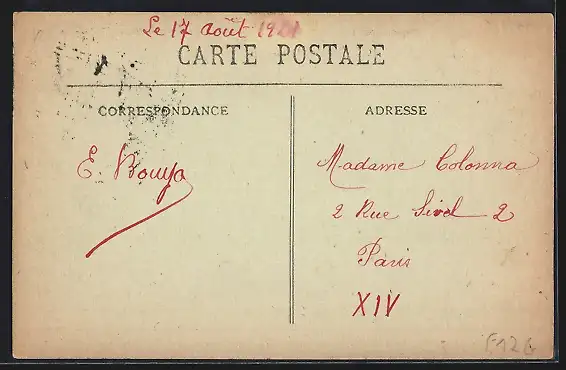 Le 17 Août 1921
CARTE POSTALE
CORRESPONDANCE
ADRESSE
E. Bouya
Madame Colonna
2 Rue Sivel 2
Paris
XIV